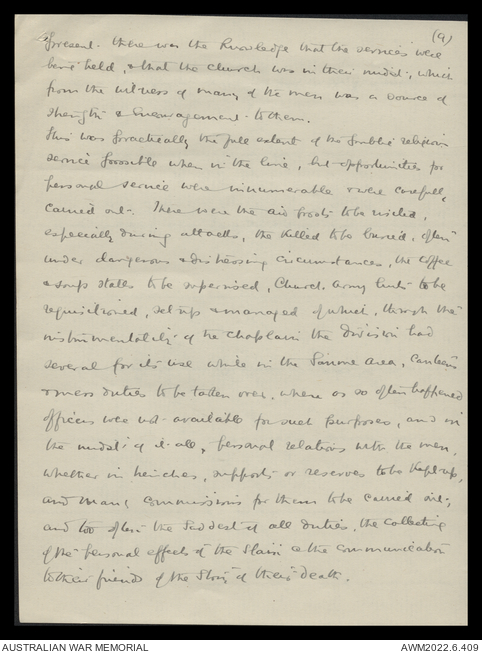 (9)
present. there was the knowledge that the services were
being held, & that the church was in their midst, which
from the witness of many of the men was a source of
strength & encouragement to them.
This was practically the full extent of the public religious
service possible when in the line, but opportunities for
personal service were innumerable & were carefully
carried out. There were the aid posts to be visited,
especially during attacks, the killed to be buried, often
under dangerous & distressing circumstances, the coffee
& soup stalls to be supervised, Church Army huts to be
requisitioned, set up & managed of which, through the
instrumentality of the chaplain the Division had
several for its use while in the Somme area, Canteen
& mess duties to be taken over, where as so often happened
officers were not available for such purposes, and in
the midst of it all, personal relations with the men,
whether in trenches, supports or reserves to be kept up,
and many commissions for them to be carried out,
and too often the saddest of all duties, the collecting
of the personal effects of the slain & the communication
to their friends of the story of their death.
AUSTRALIAN WAR MEMORIAL
AWM2022.6.409